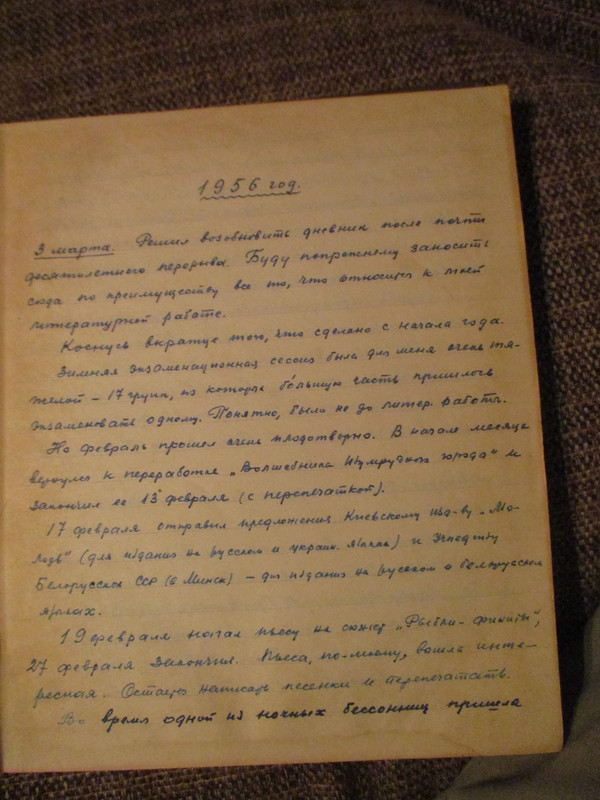 1956 год.
3 марта. Решил возобновить дневник после почти
десятилетнего перерыва. Буду попрежнему заносить
сюда по преимуществу все то, что относится к моей
литературной работе.
Коснусь вкратце того, что сделано с начала года.
Зимняя экзаменационная сессия была для меня очень тя-
желой – 17 групп, из которых бо́льшую часть пришлось
экзаменовать одному. Понятно, было не до литер. работы.
Но февраль прошел очень плодотворно. В начале месяца
вернулся к переработке „Волшебника Изумрудного города" и
закончил ее 13 февраля (с перепечаткой).
17 февраля отправил предложения Киевскому изд-ву „Мо-
лодь" (для издания на русском и украин. языках) и Учпедгизу
Белорусской ССР (в Минск) – для издания на русском и белорусском
языках.
19 февраля начал пьесу на сюжет „Рыбки-финиты",
27 февраля закончил. Пьеса, по-моему, вышла инте-
ресная. Остается написать песенки и перепечатать.
Во время одной из ночных бессонниц пришла